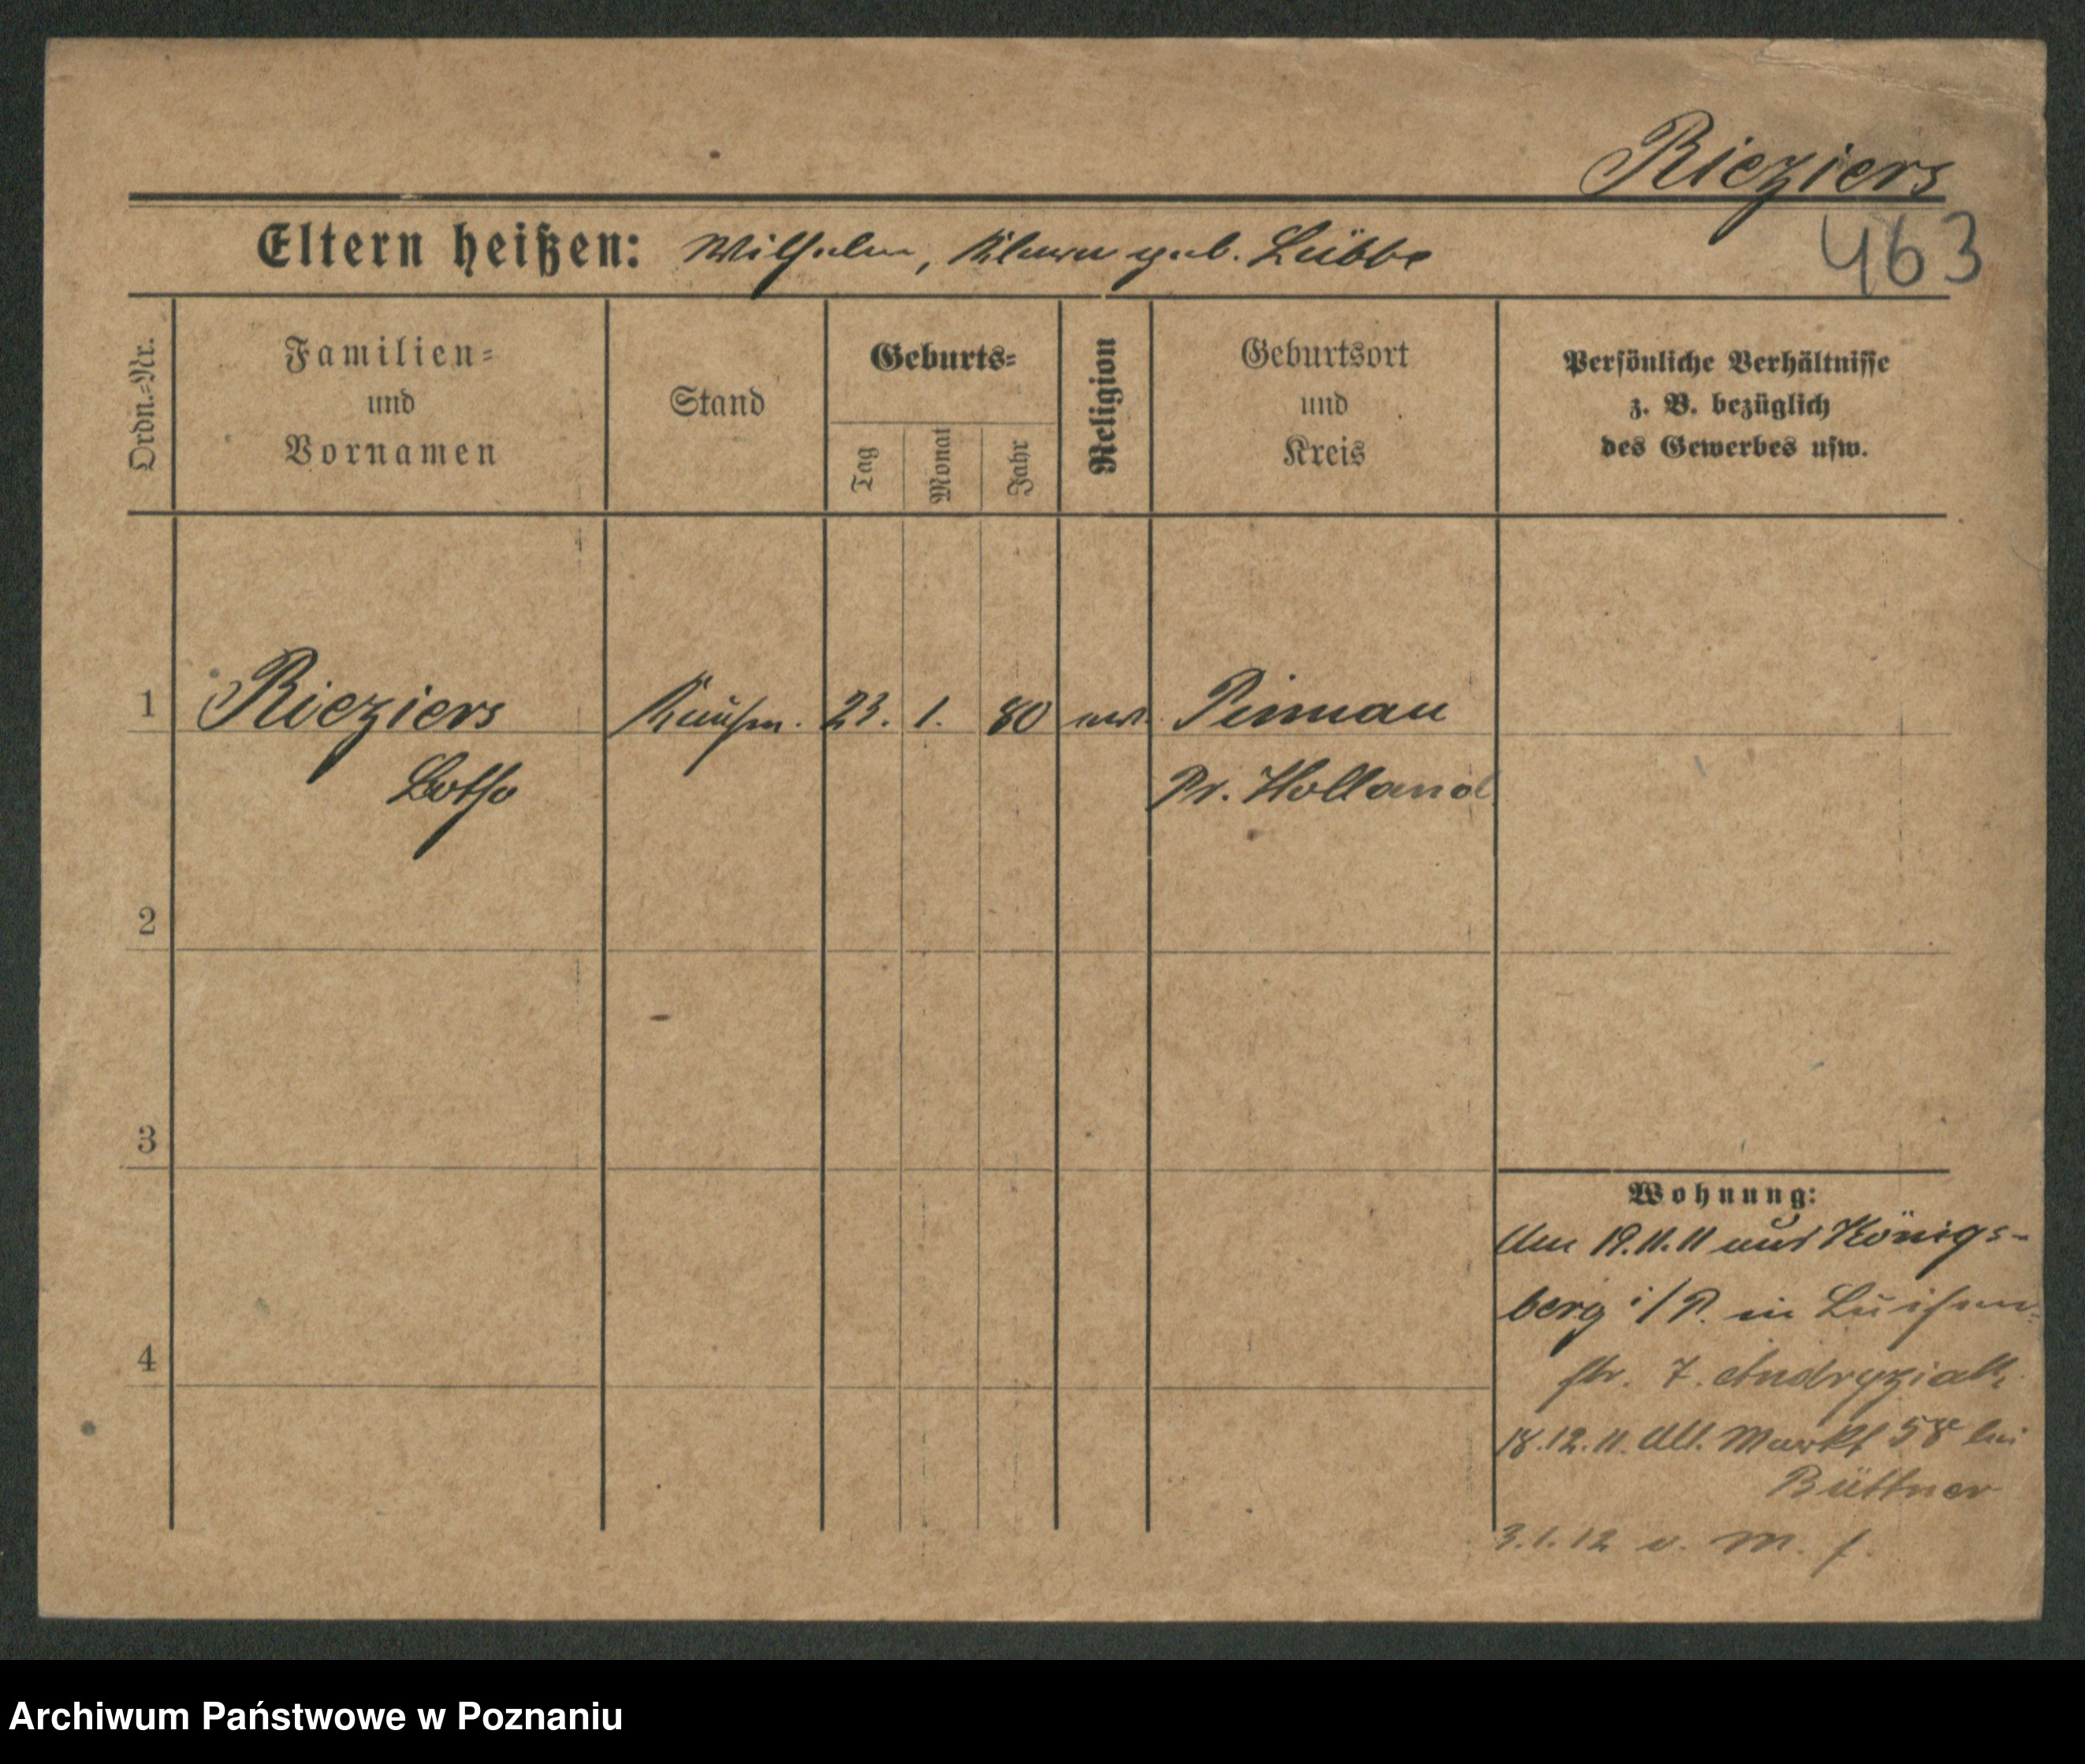 Rieziers
463
Eltern heißen: Wilhelm, Klara geb. Lübbe
Ordn.-Nr.
Familien- und Vornamen
Stand
Geburts-
Tag
Monat
Jahr
Religion
Geburtsort und Kreis
Persönliche Verhältnisse
z. B. bezüglich
des Gewerbes usw.
1 Rieziers Kaufm. 23. 1. 80 Pinnau
Pr. Holland
2
3
4
Wohnung:
Am 19.11.11 aus Königs-
berg i/P. in Luisen-
str. 7.
18.12.11. Alt. Markt 58 bei
Büttner
3.1.12 v. M.
Archiwum Państwowe w Poznaniu